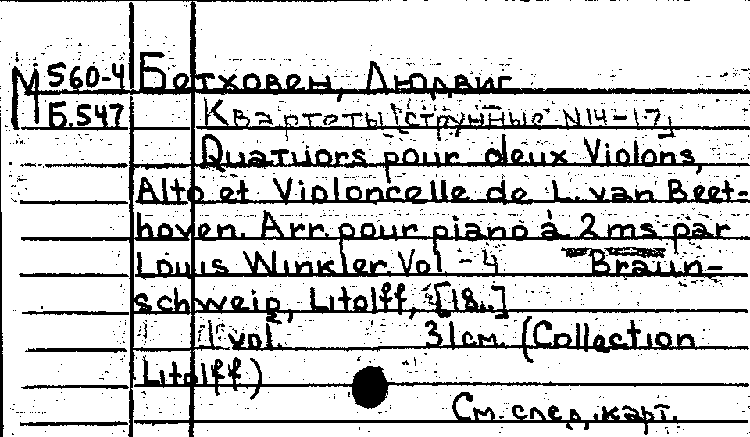 М 560-4 Бетховен, Людвиг
Б.547 Квартеты струнные N14-17
Quatuors pour deux Violons,
Alto et Violoncelle de L. van Beet-
hoven. Arr. pour piano à 2 ms par
Louis Winkler. Vol - 4 Braun-
schweig, Litolff, [18..]
1 vol. 31см. (Collection
Litolff)
См. след. карт.